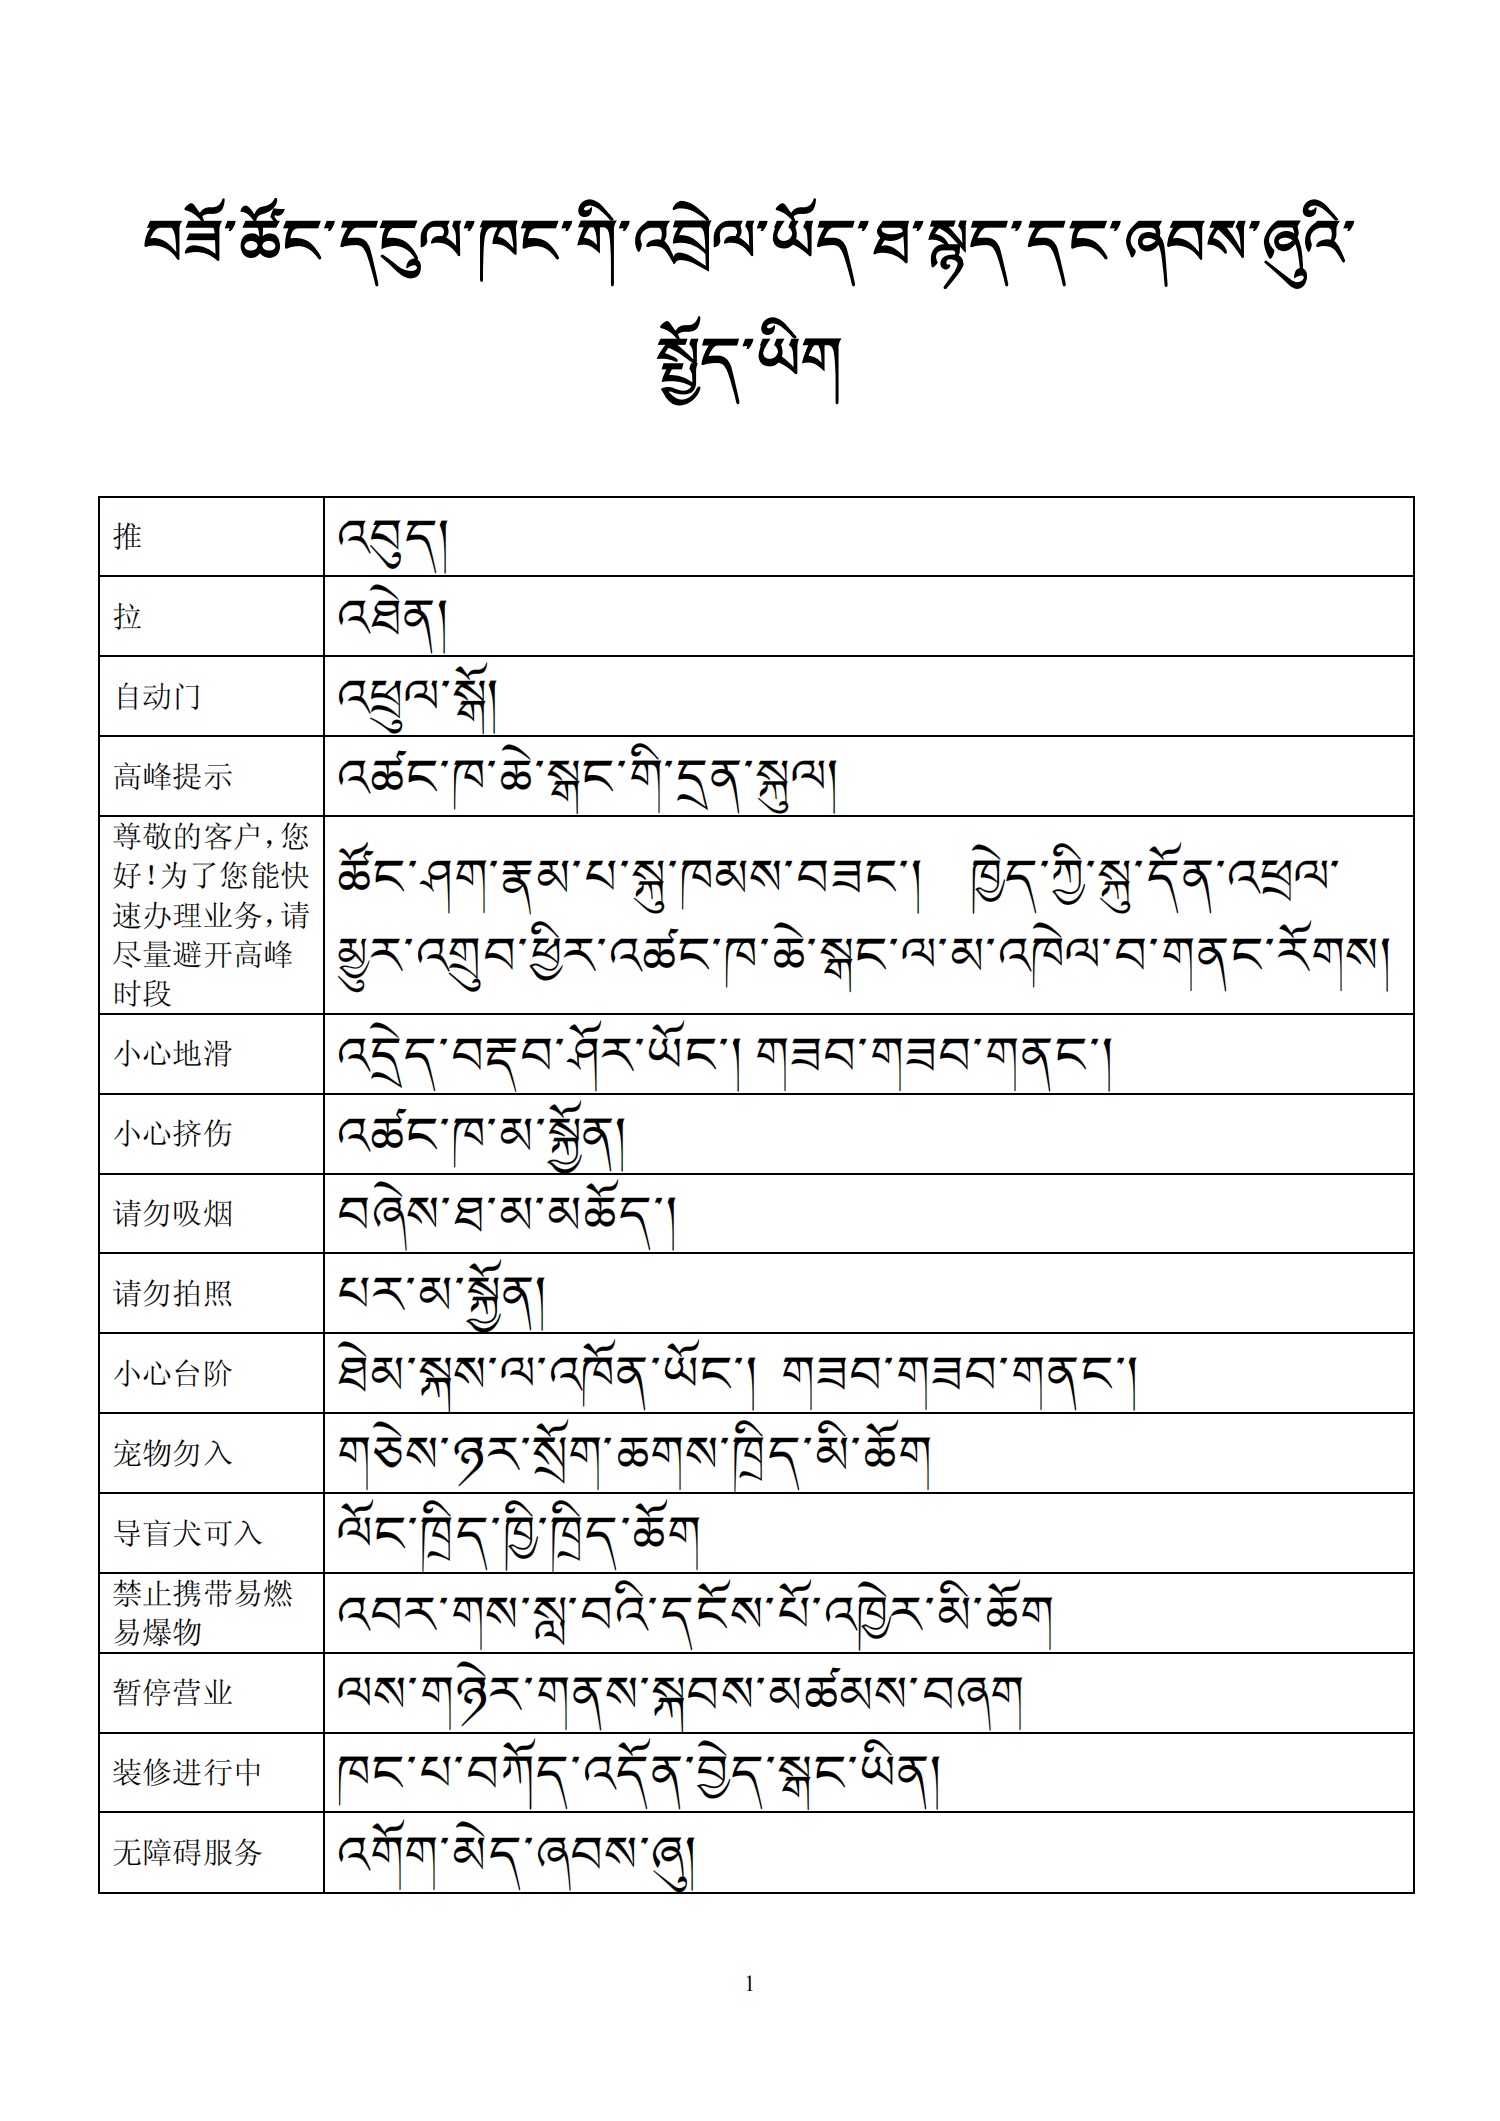 བཟོ་ཚོང་དངུལ་ཁང་གི་འབྲེལ་ཡོད་ཐ་སྙད་དང་ཞབས་ཞུའི་
སྤྱོད་ཡིག
推
འབུད།
拉
འཐེན།
自动门
འཕྲུལ་སྒོ།
高峰提示
འཚང་ཁ་ཆེ་སྒང་གི་དྲན་སྐུལ།
尊敬的客户，您
好！为了您能快
速办理业务，请
尽量避开高峰
时段
ཚོང་ཤག་རྣམ་པ་སྐུ་ཁམས་བཟང་། ཁྱེད་ཀྱི་སྐུ་དོན་འཕྲལ་
མྱུར་འགྲུབ་ཕྱིར་འཚང་ཁ་ཆེ་སྒང་ལ་མ་འཁེལ་བ་གནང་རོགས།
小心地滑
འདྲེད་བརྡབ་ཤོར་ཡོང་། གཟབ་གཟབ་གནང་།
小心挤伤
འཚང་ཁ་མ་སྐྱོན།
请勿吸烟
བཞེས་ཐ་མ་མཆོད་།
请勿拍照
པར་མ་སྐྱོན།
小心台阶
ཐེམ་སྐས་ལ་འཁོན་ཡོང་། གཟབ་གཟབ་གནང་།
宠物勿入
གཅེས་ཉར་སྲོག་ཆགས་ཁྲིད་མི་ཆོག
导盲犬可入
ལོང་ཁྲིད་ཁྱི་ཁྲིད་ཆོག
禁止携带易燃
易爆物
འབར་གས་སླ་བའི་དངོས་པོ་འཁྱེར་མི་ཆོག
暂停营业
ལས་གཉེར་གནས་སྐབས་མཚམས་བཞག
装修进行中
ཁང་པ་བཀོད་འདོན་བྱེད་སྒང་ཡིན།
无障碍服务
འགོག་མེད་ཞབས་ཞུ།
1